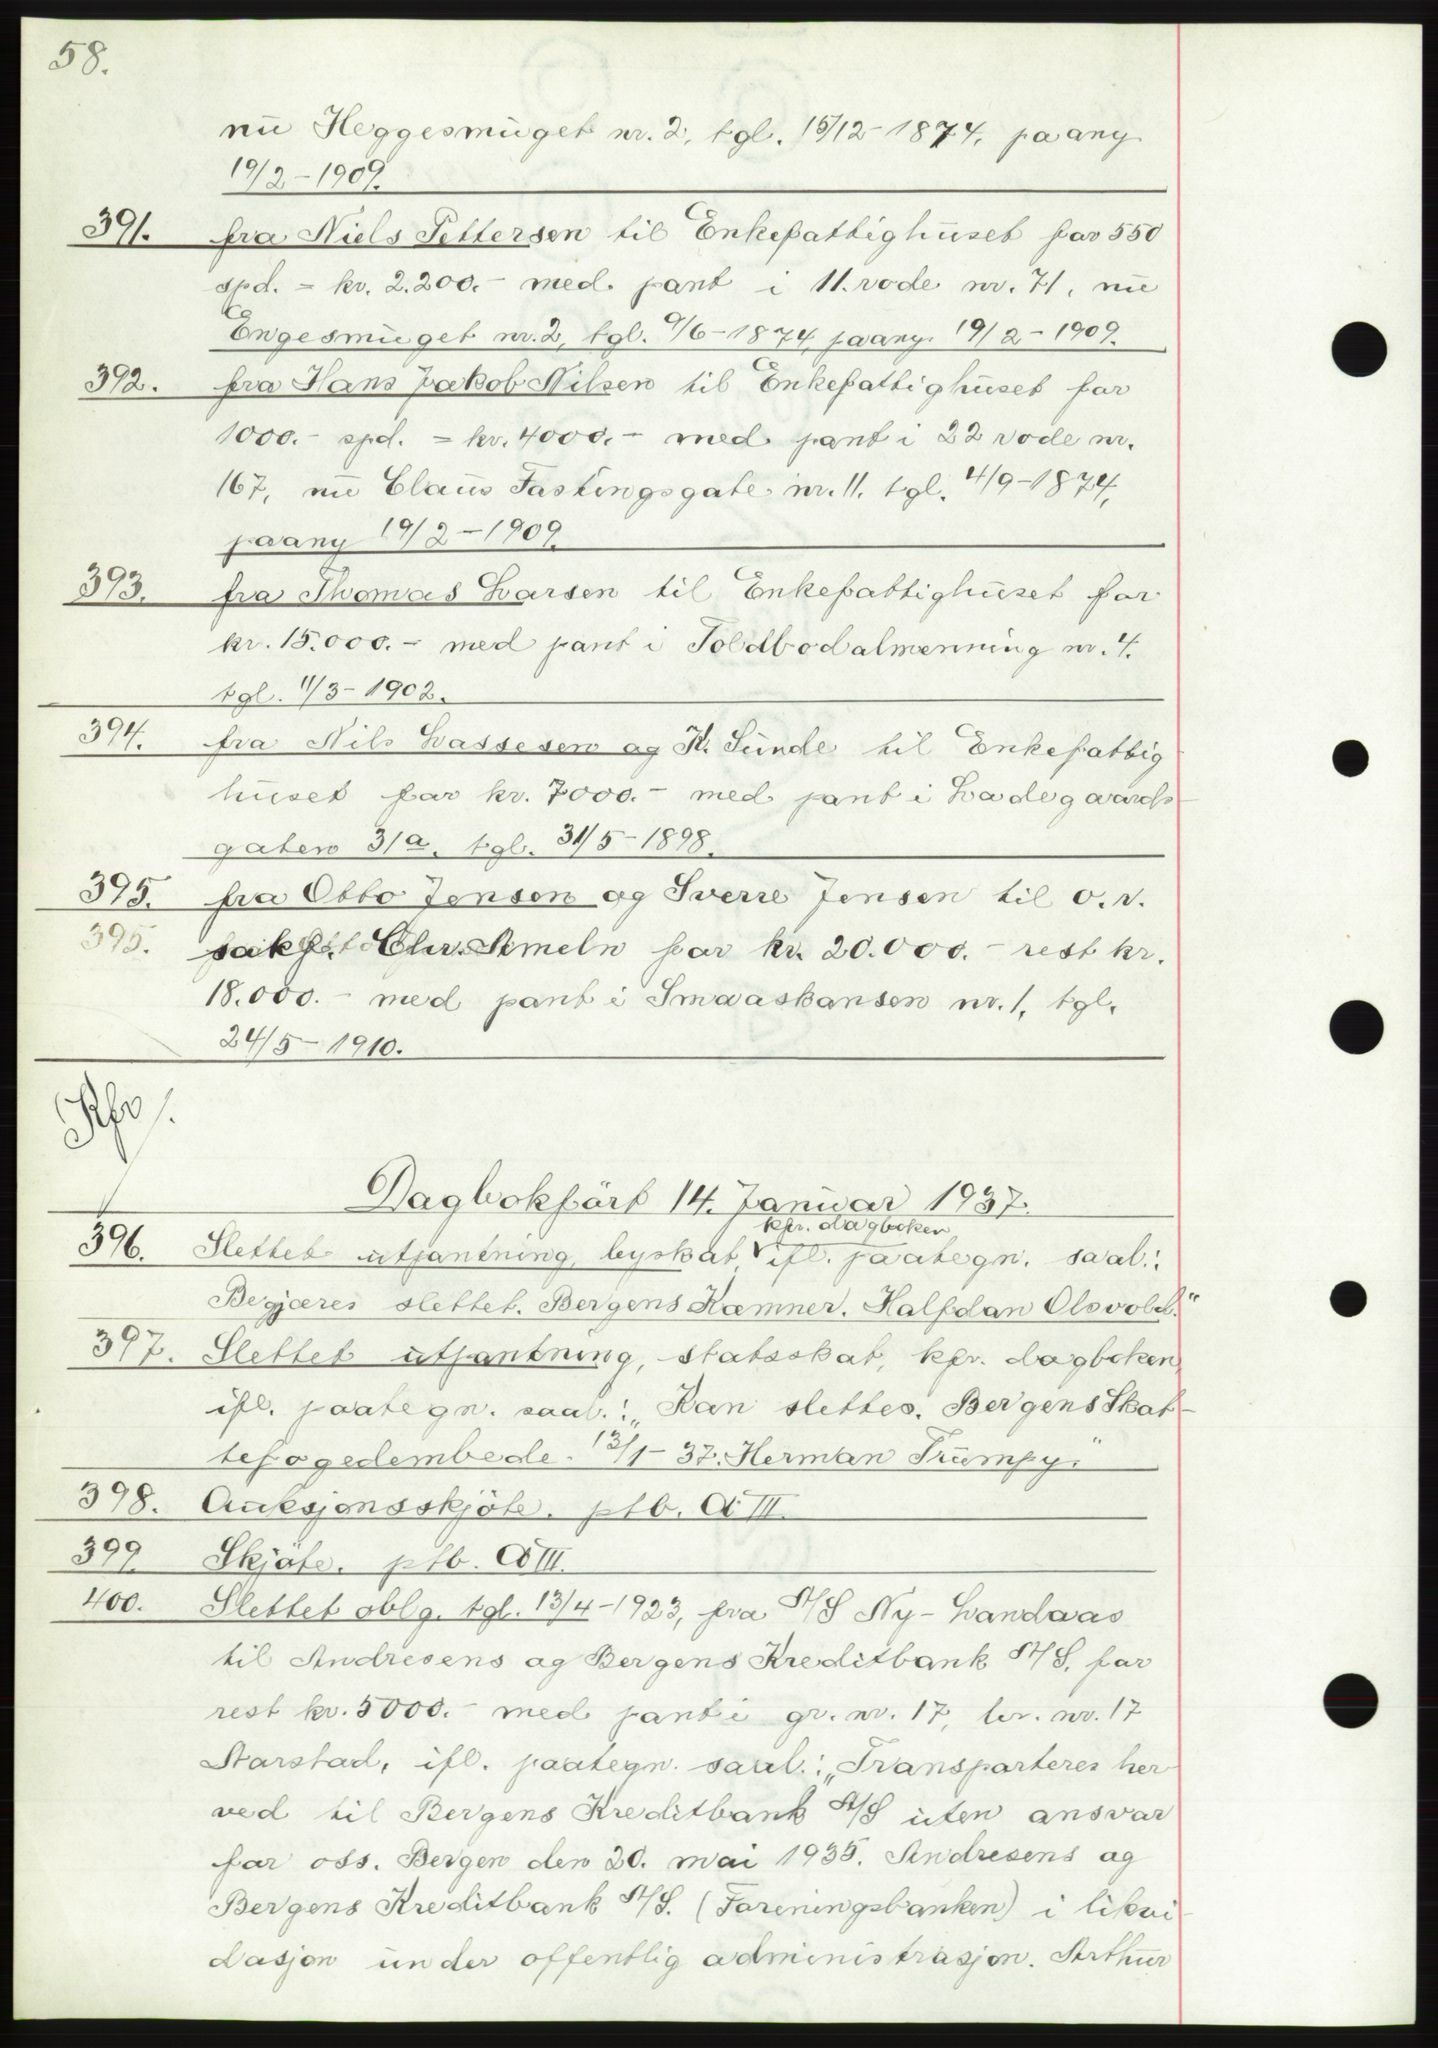 58.
nu Heggesmuget nr. 2, tgl. 15/12-1874, paany
19/2-1909.
391. fra Niels Pettersen til Enkefattighuset for 550
spd. = kr. 2.200.- med pant i 11. rode nr. 71, nu
Engesmuget nr. 2, tgl. 9/6-1874, paany. 19/2-1909.
392. fra Hans Jakob Nilsen til Enkefattighuset for
1000.- spd. = kr. 4000.- med pant i 22 rode nr.
167, nu Claus Fastingsgate nr. 11. tgl. 4/9-1874,
paany 19/2-1909.
393. fra Thomas Larsen til Enkefattighuset for
kr. 15.000.- med pant i Toldbodalmenning nr. 4.
tgl. 11/3-1902.
394. fra Nils Lassesen og K. Sunde til Enkefattig
huset for kr. 7000.- med pant i Ladegaards-
gaten 31a. tgl. 31/5-1898.
395. fra Otto Jensen og Sverre Jensen til o.r.
395. sakf. Chr. Ameln for kr. 20.000.- rest kr.
18.000.- med pant i Smaaskansen nr. 1, tgl.
24/5-1910.
Dagbokfört 14. Januar 1937.
kfr. dagboken
396. Slettet utpantning, byskat, V ifl. paategn. saal.:
Begjæres slettet. Bergens Kæmner. Halfdan Olsvold."
397. Slettet utpantning, statsskat, kfr. dagboken
ifl. paategn. saal.: "Kan slettes. Bergens Skat-
tefogedembede. 13/1-37. Herman Trumpy."
398. Auksjonsskjöte. ptb. A III.
399. Skjöte. ptb. A III.
400. Slettet oblg. tgl. 13/4-1923, fra A/S Ny-Landaas
til Andresens og Bergens Kreditbank A/S. for
rest kr. 5000.- med pant i gr. nr. 17, br. nr. 17
Aarstad, ifl. paategn. saal.: "Transporteres her
ved til Bergens Kreditbank A/S uten ansvar
for oss. Bergen den 20. mai 1935. Andresens og
Bergens Kreditbank A/S. (Foreningsbanken) i likvi-
dasjon under offentlig administrasjon. Arthur